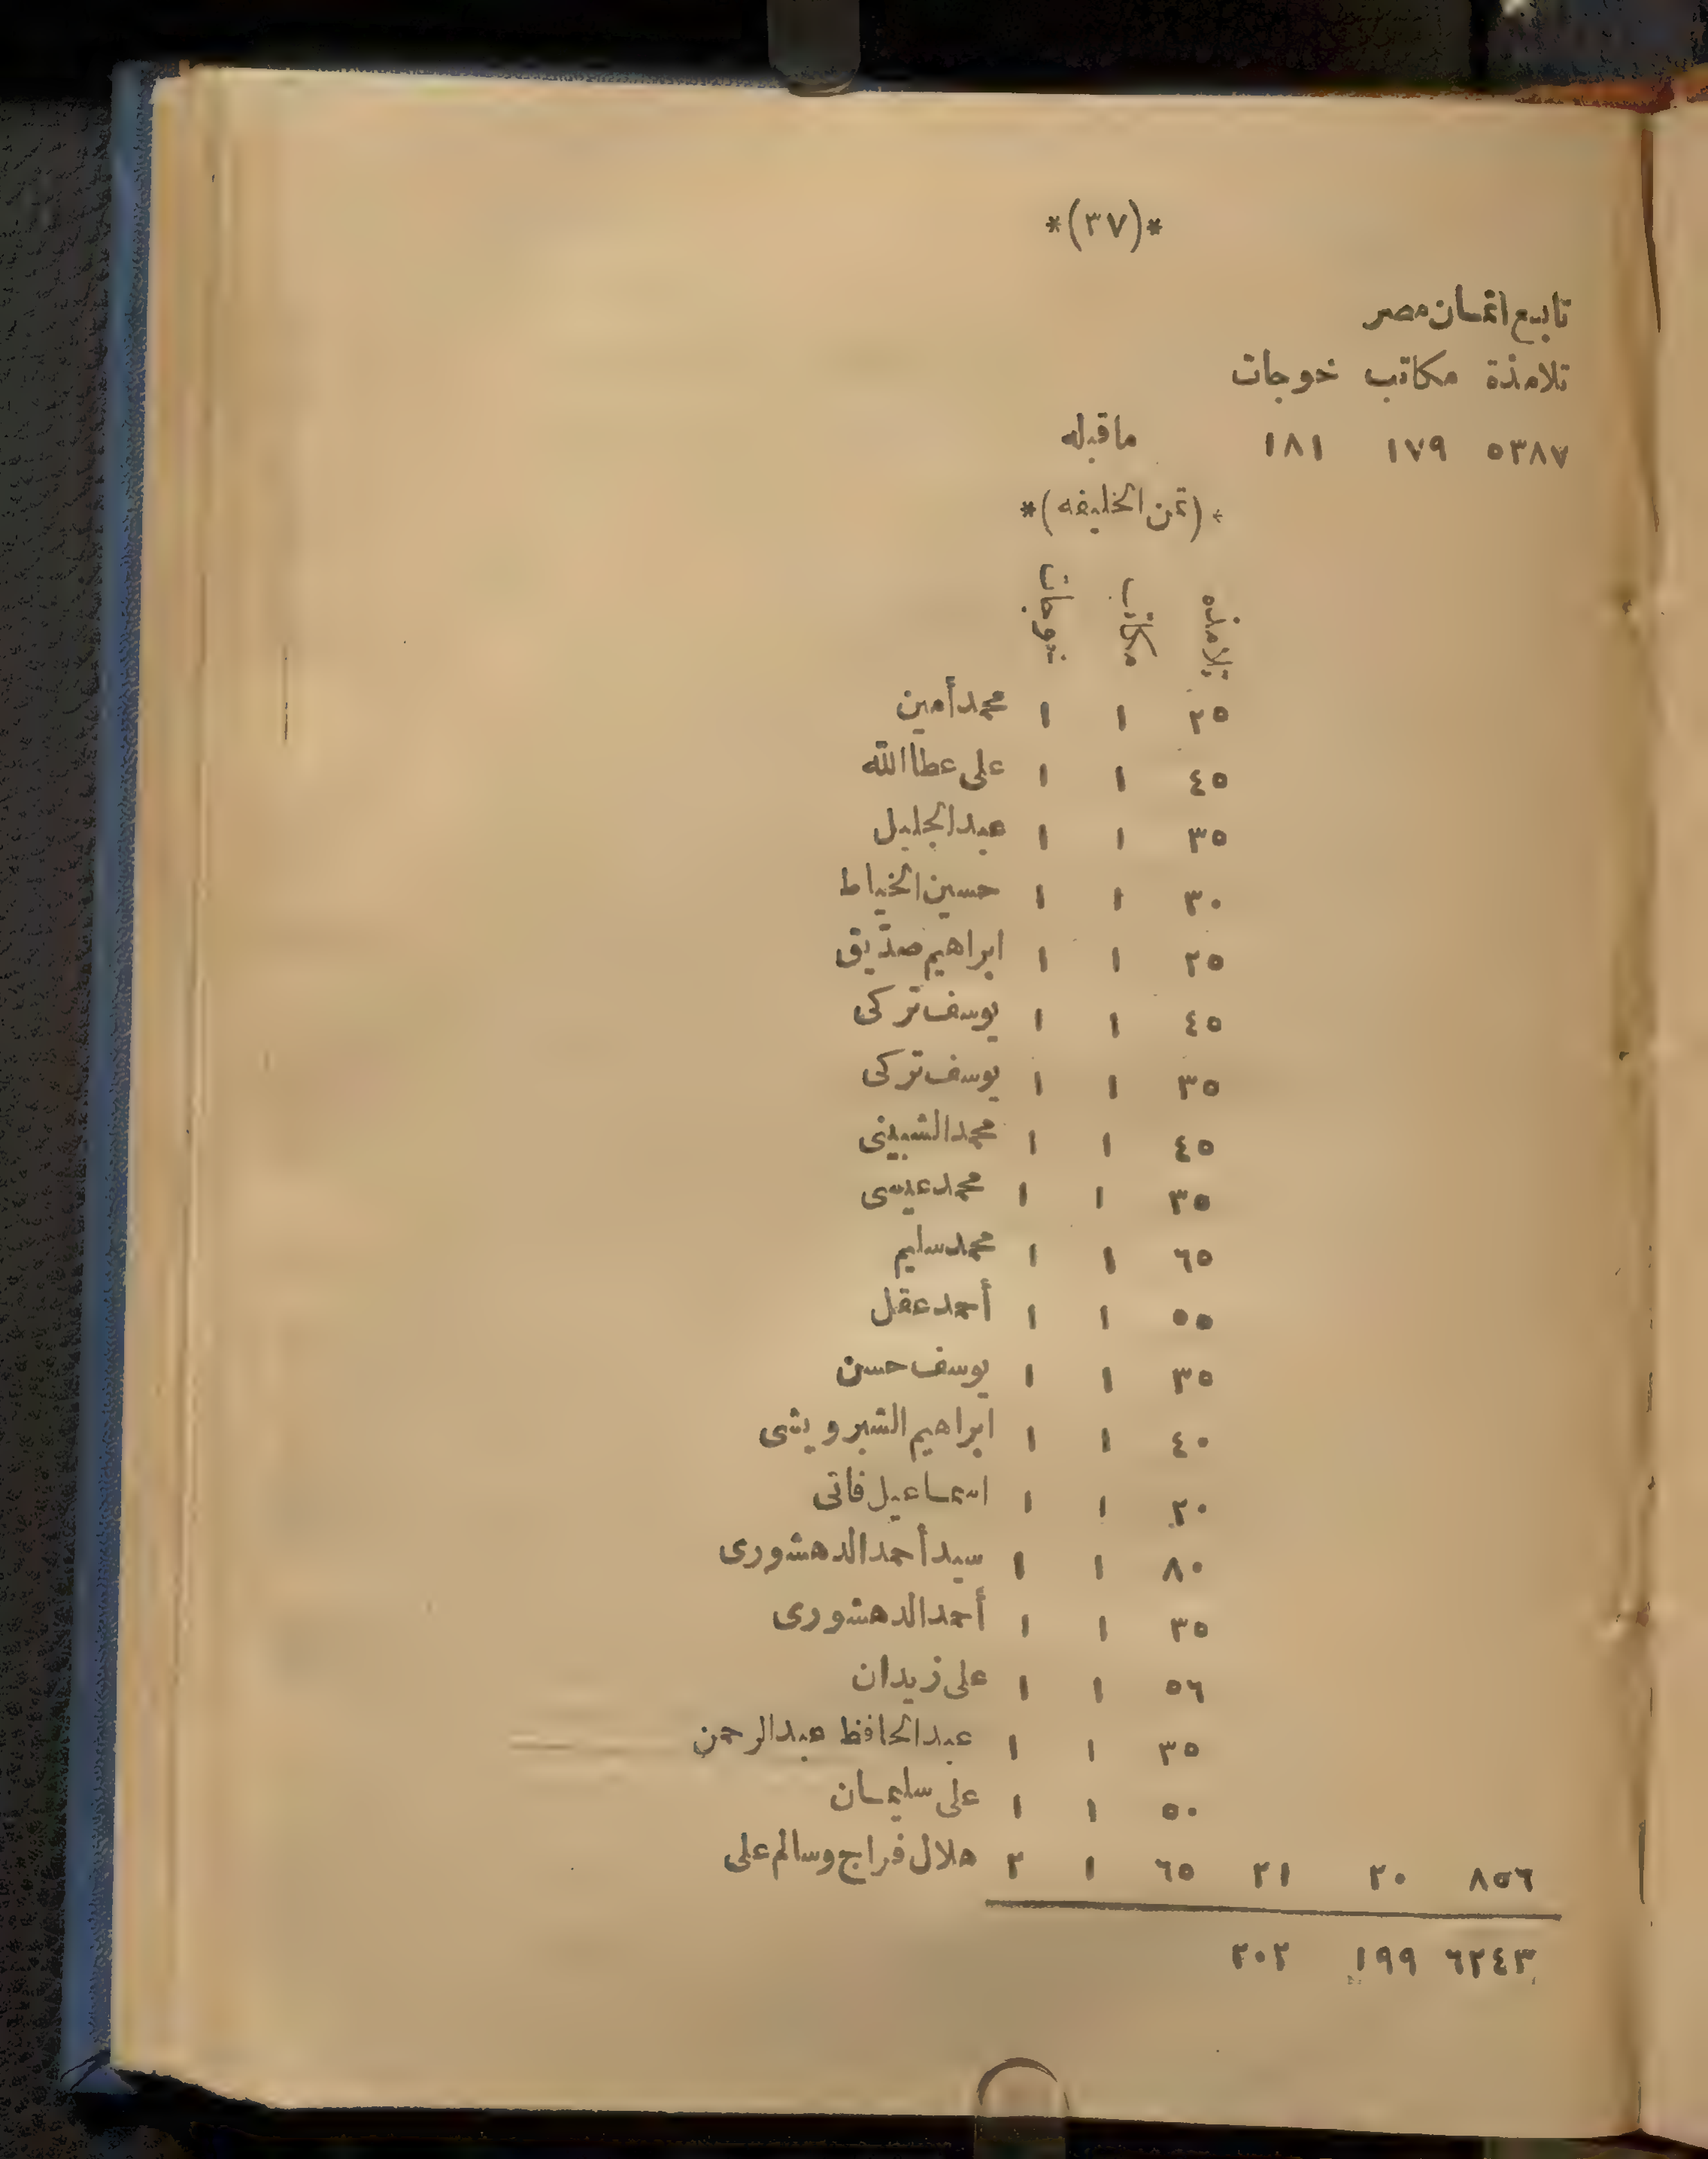 *(٣٧)*
تابع اثمان مصر
تلامذة مكاتب خوجات
٥٣٨٧ ١٧٩ ١٨١ ماقبله
*(ثمن الخليفه)*
تلامذه مكاتب خوجات
٢٥ ١ ١ محمد أمين
٤٥ ١ ١ على عطا الله
٣٥ ١ ١ عبد الجليل
٣٠ ١ ١ حسين الخياط
٢٥ ١ ١ ابراهيم صدّيق
٤٥ ١ ١ يوسف تركى
٣٥ ١ ١ يوسف تركى
٤٥ ١ ١ محمد الشبينى
٣٥ ١ ١ محمد عيسى
٦٥ ١ ١ محمد سليم
٥٥ ١ ١ أحمد عقل
٣٥ ١ ١ يوسف حسن
٤٠ ١ ١ ابراهيم الشبرويشى
٢٠ ١ ١ اسماعيل فاتى
٨٠ ١ ١ سيد أحمد الدهشورى
٣٥ ١ ١ أحمد الدهشورى
٥٦ ١ ١ على زيدان
٣٥ ١ ١ عبد الحافظ عبد الرحمن
٥٠ ١ ١ على سليمان
٨٥٦ ٢٠ ٢١ ٦٥ ١ ٢ هلال فراج وسالم على
٦٢٤٣ ١٩٩ ٢٠٢